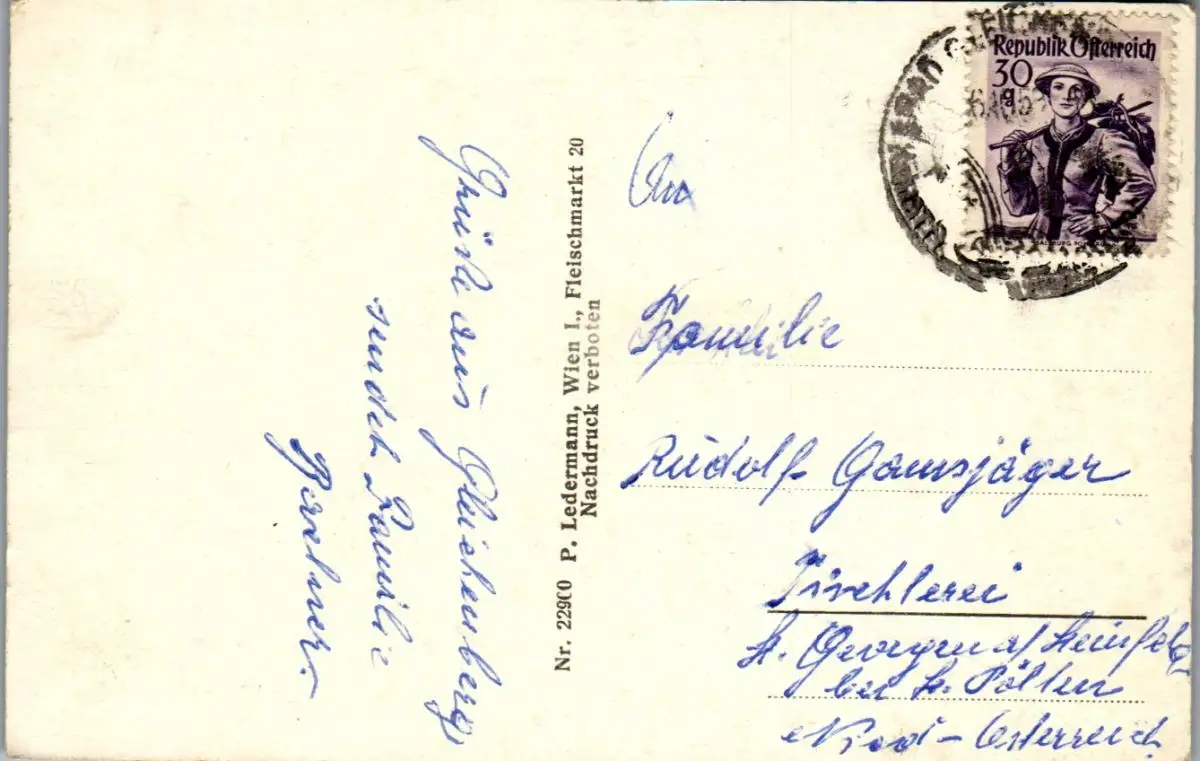 Grüße aus Gleichenberg,
sendet Familie
Nr. 22900 P. Ledermann, Wien I., Fleischmarkt 20
Nachdruck verboten
Republik Österreich
30
g
An
Familie
Rudolf Gamsjäger
Tischlerei
St. Georgen a/ Steinfeld
bei St. Pölten
Nied-Österreich